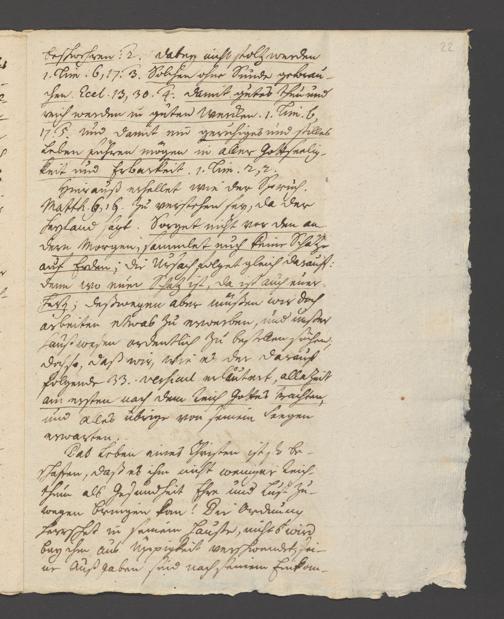 22
beschwehren: 2. dabey nicht stolz werden
1. Tim. 6, 17. 3. Solchen ohne Sünde gebrau-
chen. Eccl. 13, 30. 4. damit gutes thun und
reich werden in guten Wercken. 1. Tim. 6,
17. 5. und damit ein geruhiges und stilles
Leben führen mögen in aller Gottseelig-
keit und Erbarkeit. 1. Tim. 2, 2.
Hierauß erhellet wie der Spruch.
Matth. 6, 19. zu verstehen sey, da der
Heyland sagt. Sorget nicht vor den an
dern Morgen, sammlet euch keine Schätze
auf Erden; die Ursach folget gleich darauf:
denn wo euer Schatz ist, da ist auch euer
Hertz; deßwegen aber müßen wir doch
arbeiten etwas zu erwerben, und unser
Hauswesen ordentlich zu bestellen suchen,
daß wir, wie es der darauf
folgende 33. versicul erläutert, allezeit
am ersten nach dem Reich Gottes trachten,
und alles übrige von seinem Seegen
erwarten.
Das Leben eines Christen ist so be-
schaffen, daß es ihm nicht weniger Reich-
thum als Gesundheit Ehre und Lust zu-
wegen bringen kan! Die Ordnung
herrschet in seinem Hauße, nichts wird
bey ihm aus Üppigkeit verschwendet, sei-
ne Außgaben sind nach seinem Einkom-